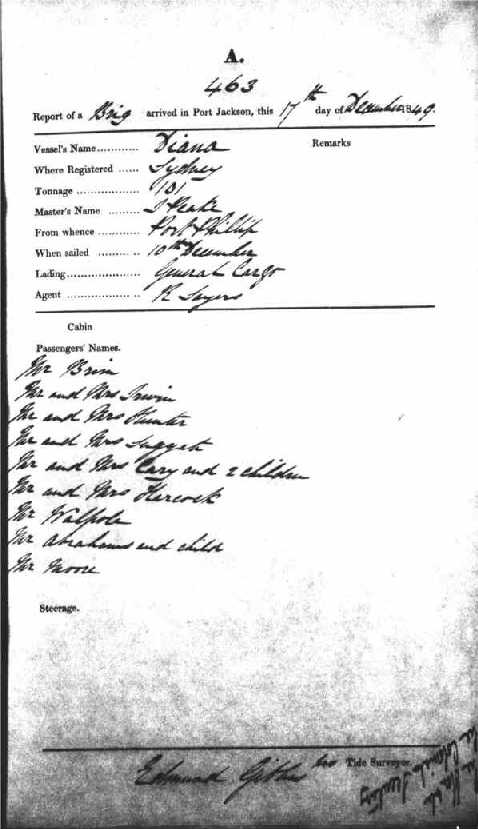 A.
463
Report of a Brig arrived in Port Jackson, this 17th day of December 1849.
Vessel's Name............ Diana Remarks
Where Registered ...... Sydney
Tonnage .................. 101
Master's Name .........
From whence ........... Port Phillip
When sailed ........... 10th December
Lading..................... General Cargo
Agent ..................... R Sayers
Cabin
Passengers' Names.
Mr Brim
Mr and Mrs Irwin
Mr and Mrs Hunter
Mr and Mrs Suggett
Mr and Mrs Cary and 2 children
Mr and Mrs Harcock
Mr Walpole
Mr Abrahams and child
Mr Moore
Steerage.
Edmund Tide Surveyor.
The Colonial Secretary